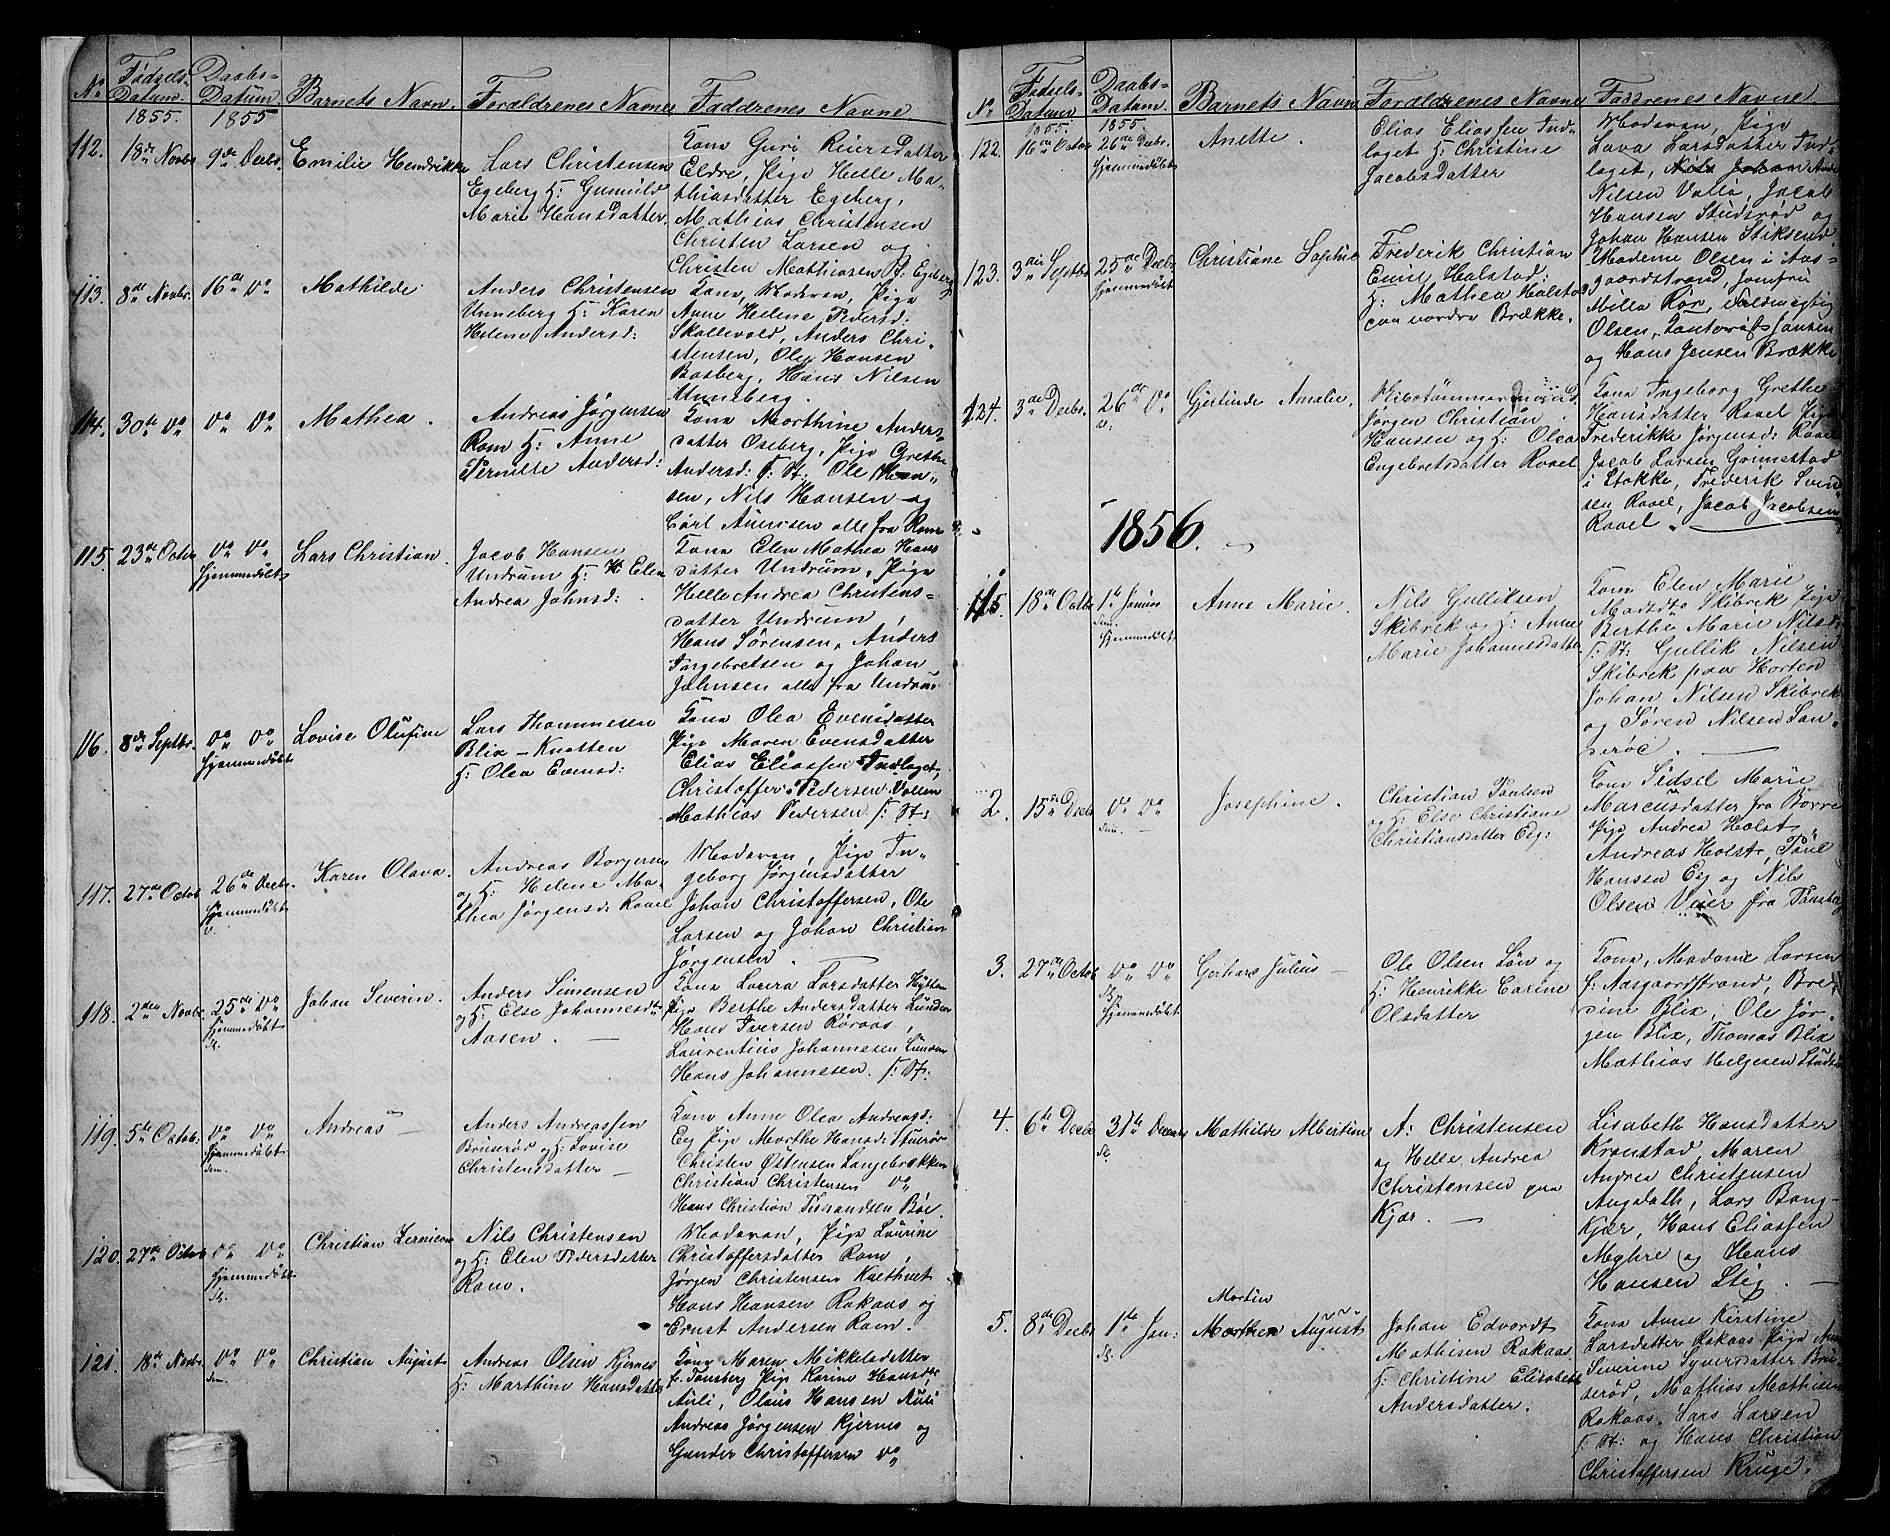 No
Fødsels-
Datum.
Daabs-
Datum
Barnets Navn.
Forældrenes Navne
Faddrenes Navne
1855.
1855
112.
18de Novbr
9de Decbr.
Emilie Hendrikke
Lars Christensen
Egeberg H: Gunnild
Marie Hansdatter.
Kona Guri Reiersdatter
Eldre, Pige Helle Ma-
thiasdatter Egeberg,
Mathias Christensen
Christen Larsen og
Christen Mathiasen H: Egeberg
113.
8de Novbr.
16de Do
Mathilde
Anders Christensen
Unneberg H: Karen
Helene Andersd:
Kona, Moderen, Pige
Anne Helene Pedersd:
Skallevold, Anders Chri-
stensen, Ole Hansen
Basberg, Hans Nilsen
Unneberg.
114.
30te Do
Do Do
Mathea.
Andreas Jørgensen
Rom H: Anne
Pernille Andersd:
Kona Marthine Anders-
datter Oseberg, Pige Grethe
Andersd: f. St. Ole Han-
sen, Nils Hansen og
Carl Aunesen alle fra Rom
115.
23de Octbr
Do Do
hjemmedøbt
Lars Christian.
Jacob Hansen
Undrum H: Elen
Andrea Johnsd:
Kona Elen Mathea Hans
datter Undrum, Pige
Helle Andrea Christens-
datter Undrum,
Hans Sørensen, Anders
Ingebretsen og Johan
Johnsen alle fra Undrum
116.
8de Septbr.
Do Do
hjemmedøbt
Lovise Olufine
Lars Thommesen
Blix - Knatten
H: Olea Evensd:
Kona Olea Evensdatter
Pige Maren Evensdatter
Elias Eliassen Indlaget,
Christoffer Pedersen Vollen
Mathias Pedersen f: St:
117.
27de Octob
26de Decbr.
hjemmedøbt
Karen Olava.
Andreas Borgersen
og H: Helene Ma-
thea Jørgensd: Ravel
Moderen, Pige In-
geborg Jørgensdatter
Johan Christoffersen, Ole
Larsen og Johan Christian
Jørgensen.
118.
2den Novbr.
25de Do
hjemmedøbt
Johan Severin.
Anders Simensen
og H: Else Johannesdtr
Aasen.
Kona Lovra Larsdatter Hytten
Pige Berthe Andersdatter Lunden
Hans Iversen Røraas,
Laurentius Johannesen Lunden
Hans Johannesen. f: St:
119.
5te Octob.
Do Do
hjemmedøbt
Andreas
Anders Andreassen
Bruserød og H: Lovise
Christensdatter
Kona Anne Olea Andreasd:
Eeg Pige Marthe Hansd:
Christen Østensen Langebrækken
Christian Christensen Do
Hans Christian Bøe.
120.
27de Octob
Do Do
hjemmedøbt
Christian
Nils Christensen
og H: Elen Pedersdatter
Rom.
Moderen, Pige Laurine
Christoffersdatter Rom,
Jørgen Christensen
Hans Hansen Rakaas og
Ernst Andersen Rom.
121.
18de Novbr.
Do Do
Christian August
Andreas Olsen Kjernes
H: Marthine Hansdatter
Kona Maren Mikkelsdatter
fr Tønsberg Pige Karine Hansdtr
Auli, Olaus Hansen Auli
Andreas Jørgensen Kjernes og
Gunder Christoffersen Do
No
Fødsels-
Datum
Daabs-
Datum
Barnets Navn
Forældrenes Navne
Faddrenes Navne
1855.
1855.
122.
16de Octor
26de Decbr.
hjemmedøbt
Anette.
Elias Eliassen Ind-
laget H: Christine
Jacobsdatter
Moderen, Pige
Lava Larsdatter Ind-
laget,
Nilsen Vollø, Jacob
Hansen Studsrød og
Johan Hansen
123.
3die Septbr
25de Decbr
hjemmedøbt
Christiane Sophie
Frederik Christian
Emil Halstad:
H: Mathea Halstad
paa nordre Brække.
Madame Olsen i Aas-
gaardstrand, Jomfru
Milla Rør, Fuldmægtig
Olsen, Jansen
og Hans Jensen Brække
124.
3de Decbr.
26de Do
Gjertinde Amalie.
Skibstømmermand
Jørgen Christian
Hansen og H: Olea
Engebretsdatter Ravel
Kona Ingeborg Grethe
Hansdatter Ravel Pige
Frederikke Jørgensd: Ravel
Jacob Larsen Grimestad
i Stokke, Frederik Svend
sen Ravel, Jacob Jacobsen
Ravel.
1856.
1.
18de Octbr
1ste Januar
hjemmedøbt.
Anne Marie.
Nils Gulliksen
Skibrek og H: Anne
Marie Johannesdatter
Kona Elen Marie
Madsd: Skibrek Pige
Berthe Marie Nilsd:
f: St: Gullik Nilsen
Skibrek paa Horten
Johan Nilsen Skibrek
og Søren Nilsen San-
derød.
2.
15de Decbr
Do Do
Josephine.
Christian Paulsen
og H: Else Christiane
Christiansdatter Eeg:
Kona Sidsel Marie
Marcusdatter fra Borre
Pige Andrea Holst,
Andreas Holst, Paul
Hansen Eeg og Nils
Olsen Vier fra Tønsberg
3.
27de Octob
Do Do
hjemmedøbt
Gerhard Julius
Ole Olsen Løn og
H: Henrikke Carine
Olsdatter
Kona, Madame Larsen
f: Aasgaardstrand, Bre-
dine Blix, Ole Jør-
gen Blix, Thomas Blix
Mathias Helgesen
4.
6te Decbr
31te Decembr
Mathilde Albertine
A: Christensen
og Helle Andrea
Christensen paa
Kjær.
Lisabeth Hansdatter
Kronstad, Maren
Andrea Christensen
Augdalh, Lars Bang
Kjær, Hans Eliassen
Myhre og Hans
Hansen Stig.
5.
8de Decbr
1ste Jan:
Martin
Morthen August
Johan Edvardt
Mathisen Rakaas.
H: Christine Elisabeth
Andersdatter.
Kona Anne Kirstine
Larsdatter Rakaas Pige Anne
Severine Syversdatter Bru-
serød, Mathias Mathisen
Rakaas. Lars Larsen
f: St: og Hans Christian
Christoffersen Kruge.